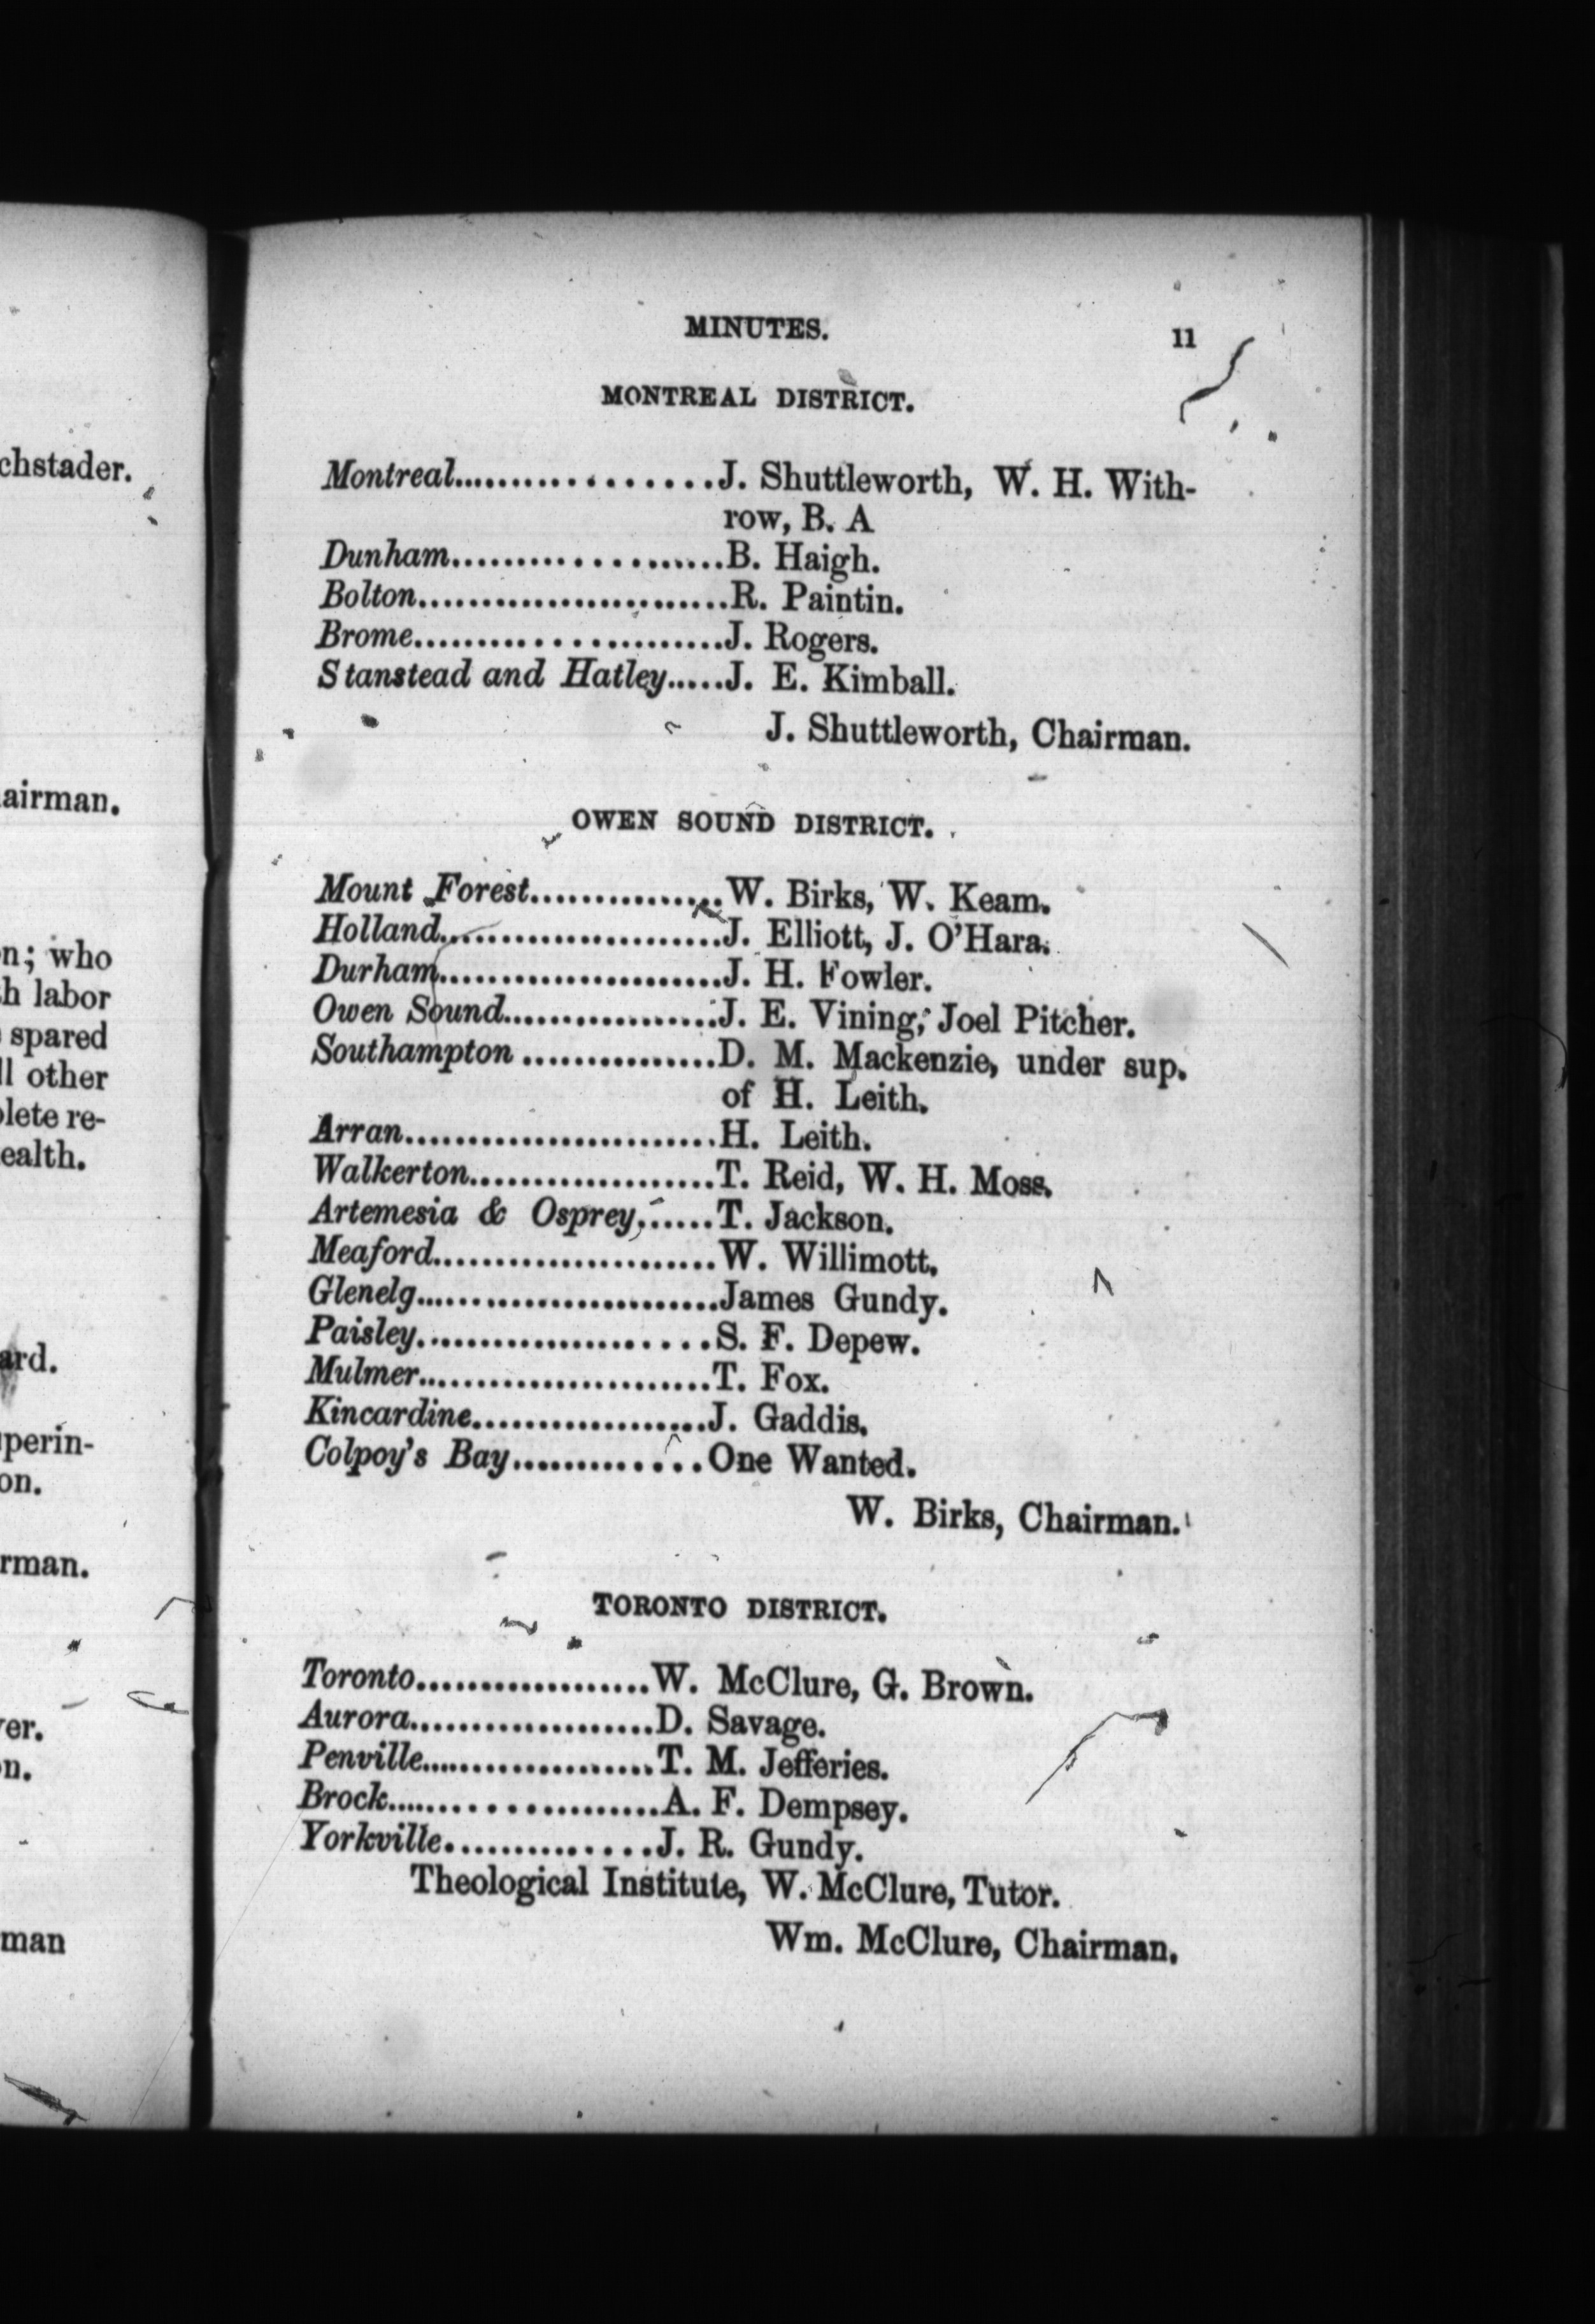 chstader.
airman.
n; who
h labor
spared
ll other
plete re-
ealth.
ard.
perin-
on.
rman.
er.
n.
man
MINUTES. 11
MONTREAL DISTRICT.
Montreal....................J. Shuttleworth, W. H. With-
row, B. A
Dunham.....................B. Haigh.
Bolton........................R. Paintin.
Brome........................J. Rogers.
Stanstead and Hatley.....J. E. Kimball.
J. Shuttleworth, Chairman.
OWEN SOUND DISTRICT.
Mount Forest...............W. Birks, W. Keam.
Holland......................J. Elliott, J. O'Hara.
Durham......................J. H. Fowler.
Owen Sound.................J. E. Vining, Joel Pitcher.
Southampton ...............D. M. Mackenzie, under sup.
of H. Leith.
Arran........................H. Leith.
Walkerton...................T. Reid, W. H. Moss.
Artemesia & Osprey.......T. Jackson.
Meaford......................W. Willimott.
Glenelg........................James Gundy.
Paisley.......................S. F. Depew.
Mulmer.......................T. Fox.
Kincardine...................J. Gaddis.
Colpoy's Bay...............One Wanted.
W. Birks, Chairman.
TORONTO DISTRICT.
Toronto...................W. McClure, G. Brown.
Aurora....................D. Savage.
Penville...................T. M. Jefferies.
Brock.....................A. F. Dempsey.
Yorkville................J. R. Gundy.
Theological Institute, W. McClure, Tutor.
Wm. McClure, Chairman.